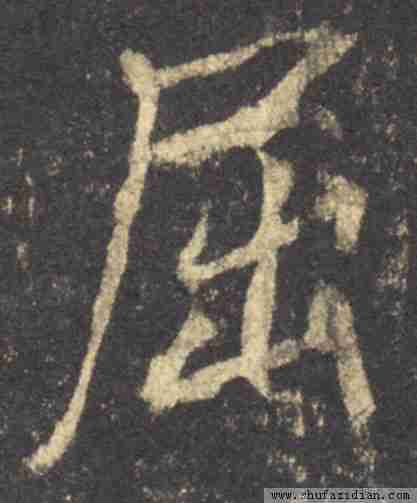 屈
www.shufazidian.com